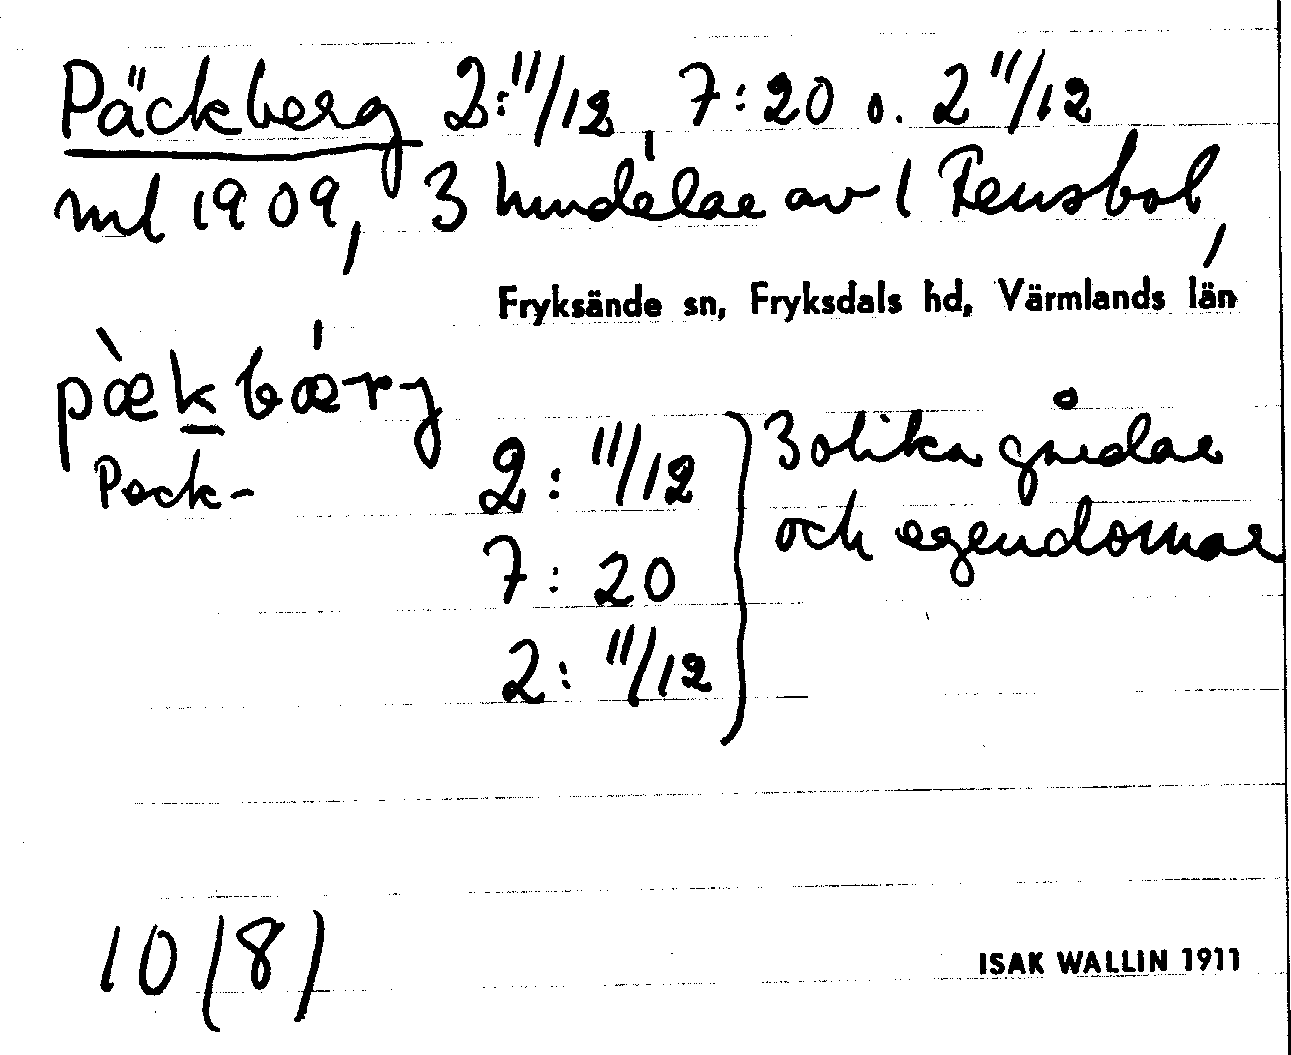 Päckberg 2:11/12, 7:20 o. 2 11/12
ml 1909, 3 hmdelar av 1 Fensbol,
Fryksände sn, Fryksdals hd, Värmlands län
pæ̀kbǽrj
Pack-
2: 11/12
7: 20
2: 11/12
3 olika gårdar
och egendomar
10 (8)
ISAK WALLIN 1911